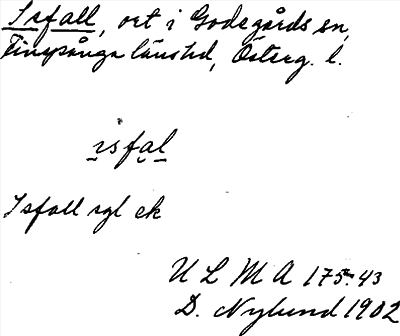 Isfall, ort i Godegårds sn,
Finspånga länshd, Österg. l.
isfal
Isfall sgl ek
ULMA 175:43
D. Nylund 1902